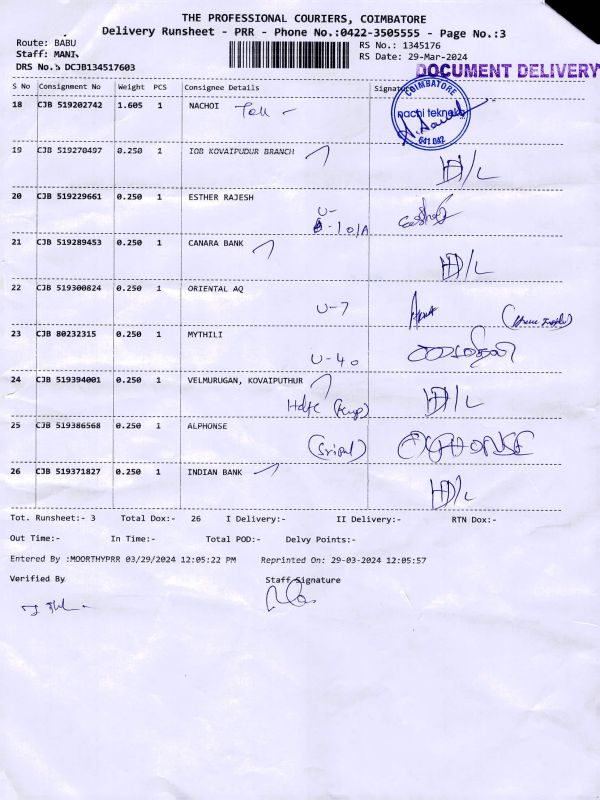 THE PROFESSIONAL COURIERS, COIMBATORE
Delivery Runsheet - PRR - Phone No.:0422-3505555 - Page No.:3
Route: BABU
RS No.: 1345176
Staff: MANI
RS Date: 29-Mar-2024
DRS No.: DCJB134517603
DOCUMENT DELIVERY
S No Consignment No Weight PCS Consignee Details Signature
18 CJB 519202742 1.605 1 NACHOI
COIMBATORE
nachi tekneko
641 042
19 CJB 519270497 0.250 1 IOB KOVAIPUDUR BRANCH
20 CJB 519229661 0.250 1 ESTHER RAJESH
U-
10/A
21 CJB 519289453 0.250 1 CANARA BANK
22 CJB 519300824 0.250 1 ORIENTAL AQ
U-7
23 CJB 80232315 0.250 1 MYTHILI
U-40
24 CJB 519394001 0.250 1 VELMURUGAN, KOVAIPUTHUR
Hdfc
25 CJB 519386568 0.250 1 ALPHONSE
ALPHONSE
26 CJB 519371827 0.250 1 INDIAN BANK
Tot. Runsheet:- 3 Total Dox:- 26 I Delivery:- II Delivery:- RTN Dox:-
Out Time:- In Time:- Total POD:- Delvy Points:-
Entered By :MOORTHYPRR 03/29/2024 12:05:22 PM Reprinted On: 29-03-2024 12:05:57
Verified By Staff Signature